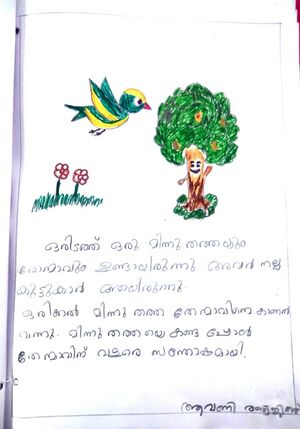 ഒരിടത്ത് ഒരു മിന്നു തത്തയും
തേന്മാവും ഉണ്ടായിരുന്നു അവർ നല്ല
കൂട്ടുകാർ ആയിരുന്നു.
ഒരിക്കൽ മിന്നു തത്ത തേന്മാവിനെ കാണാൻ
വന്നു. മിന്നു തത്തയെ കണ്ട പ്പോൾ
തേന്മാവിന് വളരെ സന്തോഷമായി.
ആവണി